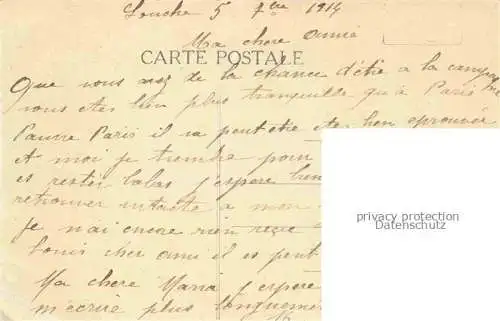 Louche 5 7bre 1914
Ma chere amie
CARTE POSTALE
Que vous avez de la chance d'étre a la campagne
vous etes bien plus tranquille qu'à Paris
Pauvre Paris il va peut etre etre bien eprouvée
et moi je tremble pour
est restér labas j'espere bien
retrouver intacte a mon
je n'ai encore rien reçue
Louis cher ami il es peut
Ma chere Maria j'espere
m'écrire plus longuement
privacy protection
Datenschutz